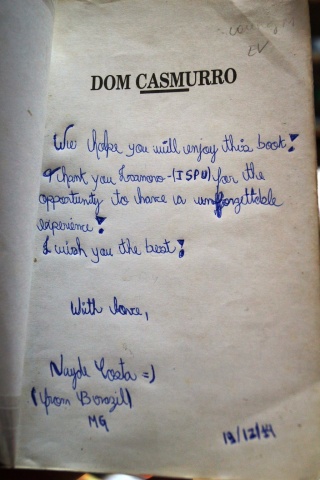 EV
DOM CASMURRO
We hope you will enjoy this book!
Thank you Ivanovo-(ISPU) for the
opportunity to have a unforgettable
experience!
I wish you the best!
With love,
Nayde Costa =)
(from Brazil)
MG